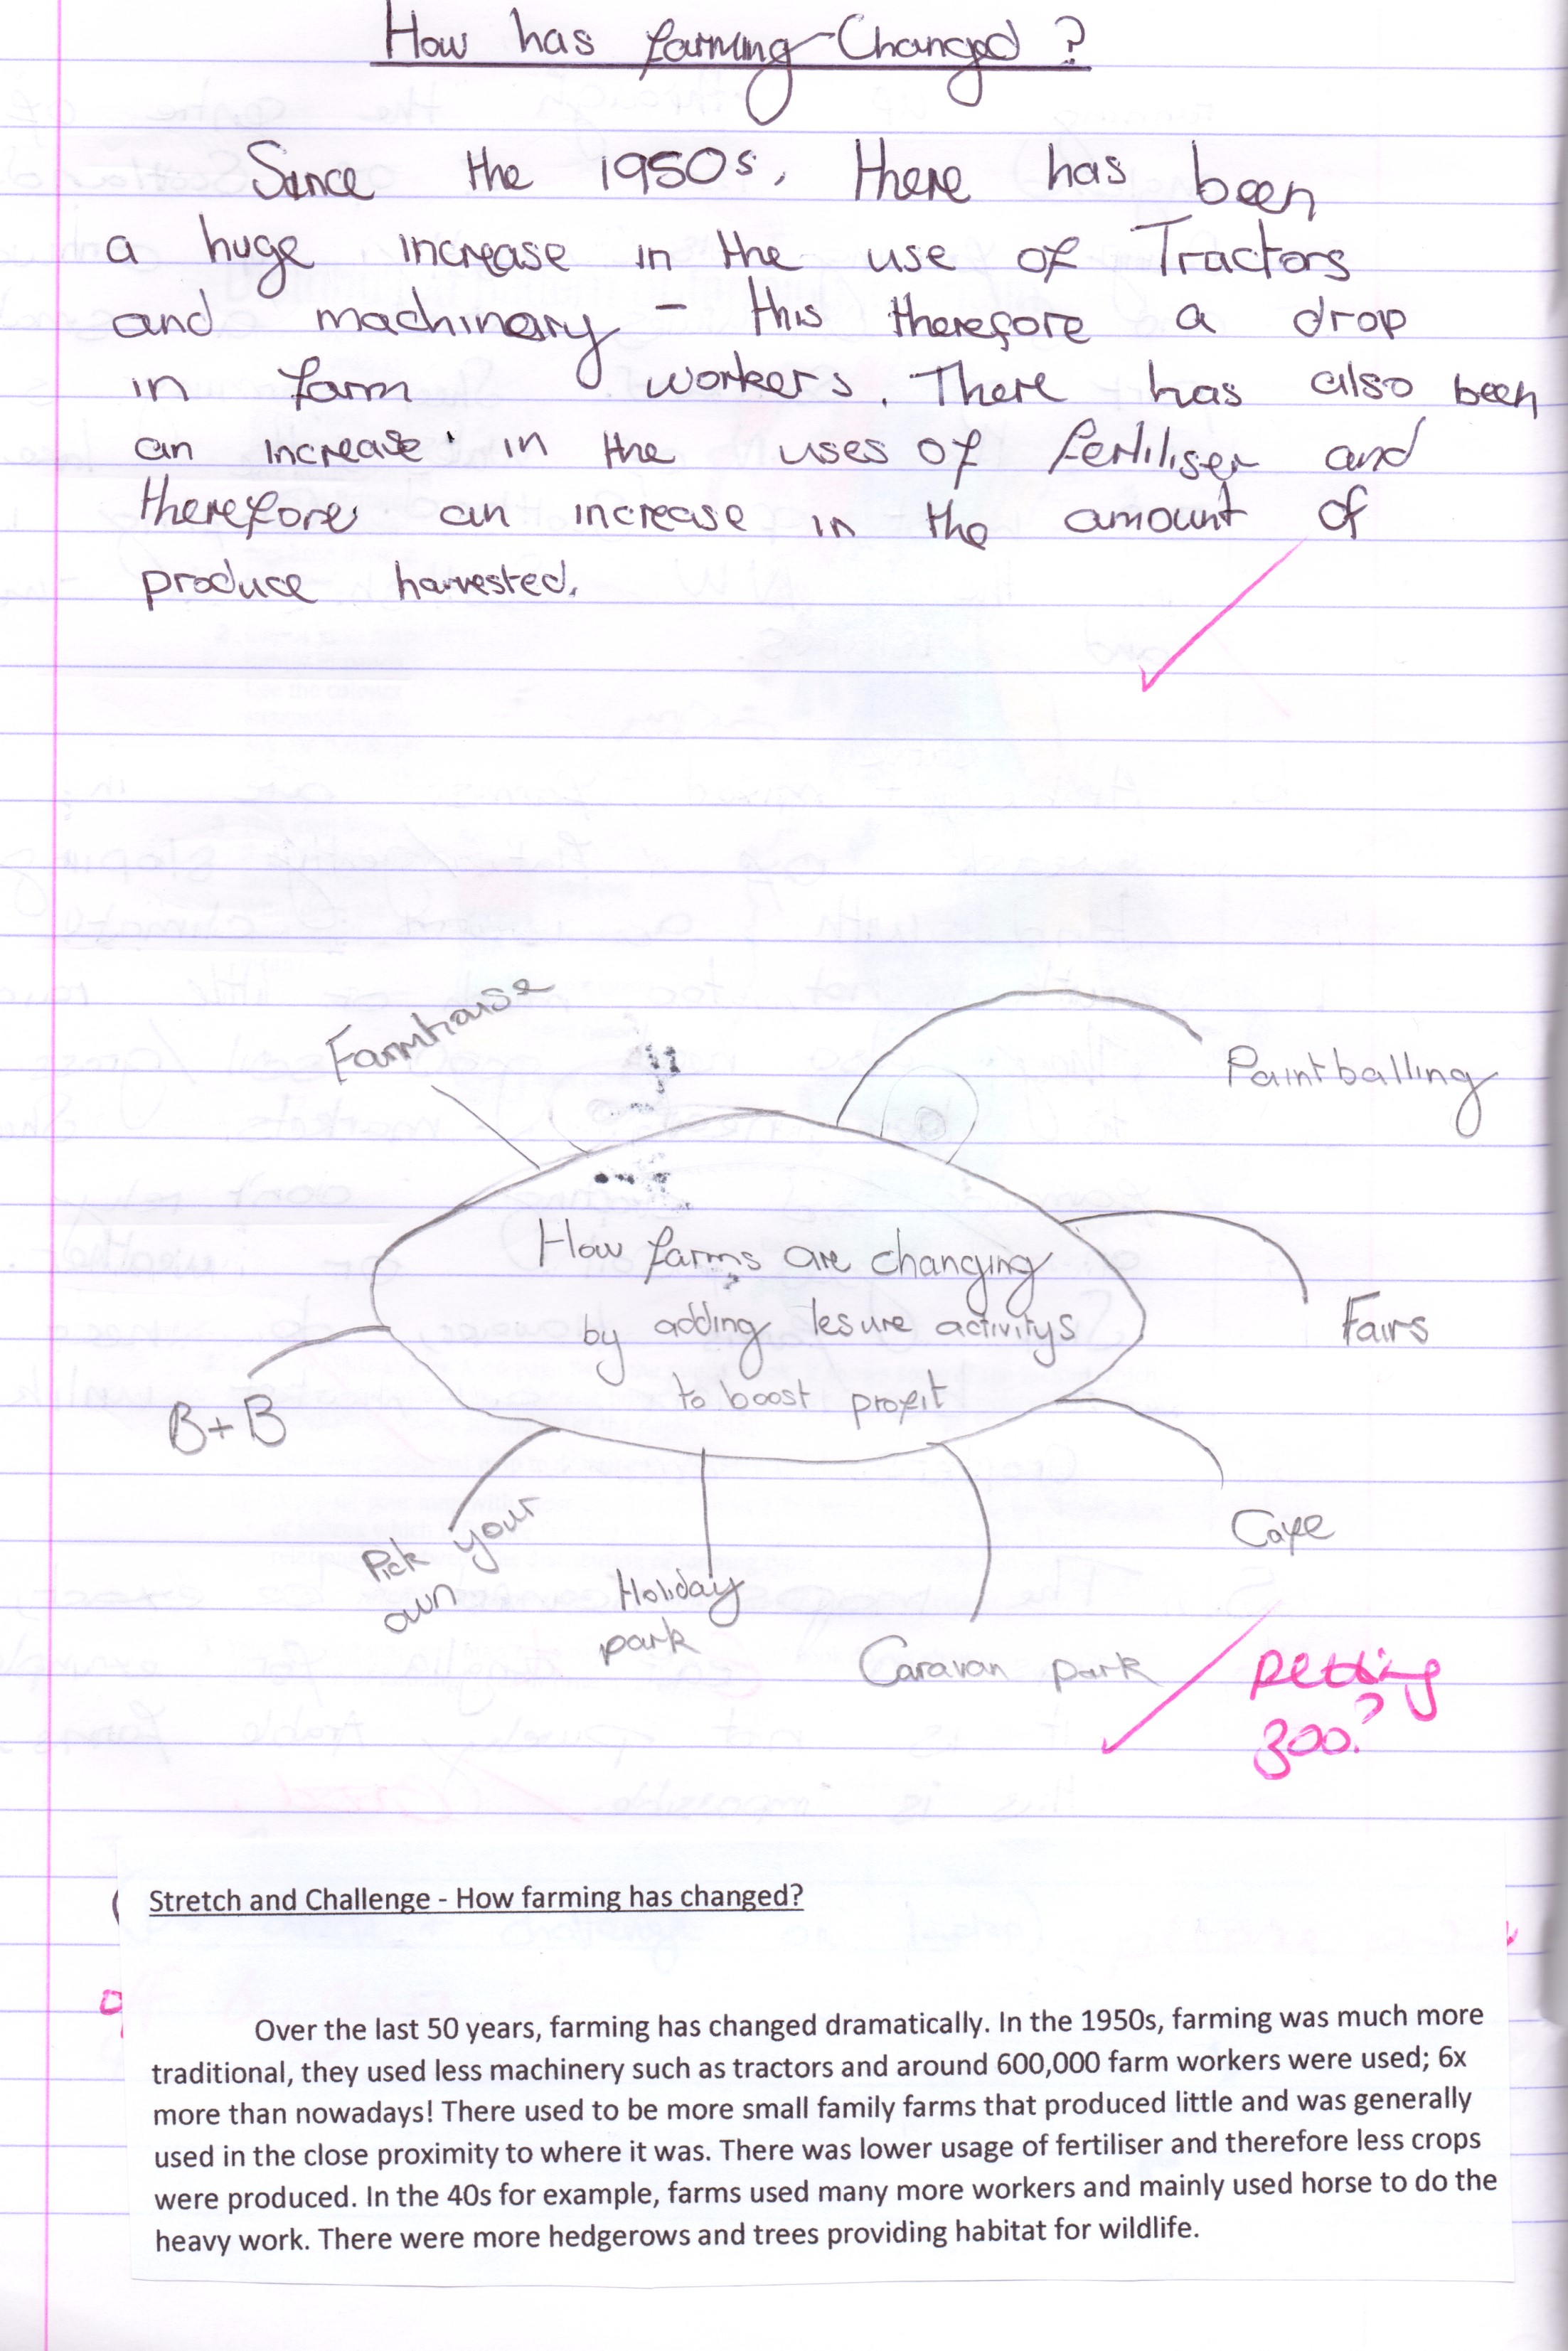 How has farming Changed?
Since the 1950s, there has been
a huge increase in the use of Tractors
and machinary - this therefore a drop
in farm workers. There has also been
an increase in the uses of fertiliser and
therefore an increase in the amount of
produce harvested.
Farmhouse
Paintballing
How farms are changing
by adding lesure activitys
to boost profit
Fairs
B+B
Cafe
Pick your
own
Holiday
park
Caravan park
petting
zoo?
Stretch and Challenge - How farming has changed?
Over the last 50 years, farming has changed dramatically. In the 1950s, farming was much more
traditional, they used less machinery such as tractors and around 600,000 farm workers were used; 6x
more than nowadays! There used to be more small family farms that produced little and was generally
used in the close proximity to where it was. There was lower usage of fertiliser and therefore less crops
were produced. In the 40s for example, farms used many more workers and mainly used horse to do the
heavy work. There were more hedgerows and trees providing habitat for wildlife.